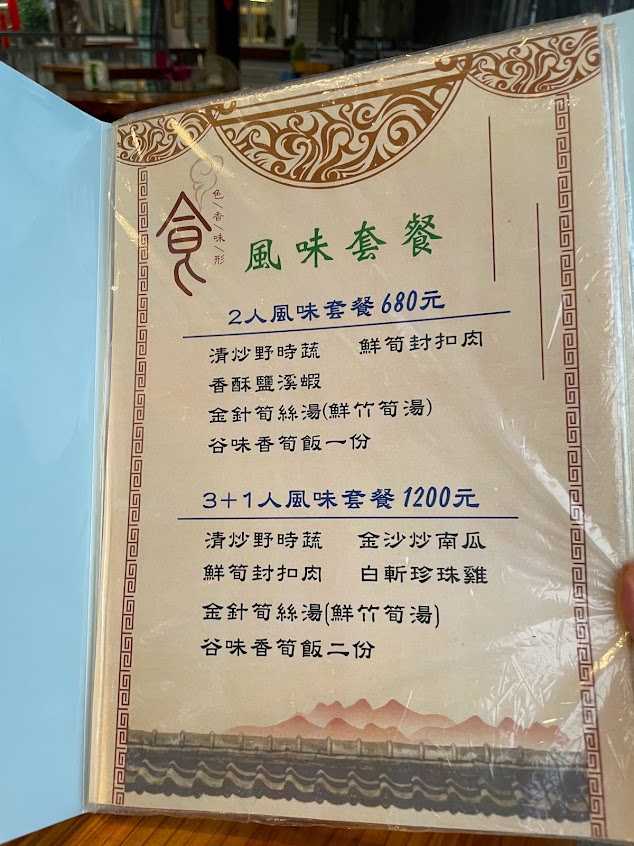 食
色/香/味/形
風味套餐
2人風味套餐680元
清炒野時蔬 鮮筍封扣肉
香酥鹽溪蝦
金針筍絲湯(鮮竹筍湯)
谷味香筍飯一份
3+1人風味套餐1200元
清炒野時蔬 金沙炒南瓜
鮮筍封扣肉 白斬珍珠雞
金針筍絲湯(鮮竹筍湯)
谷味香筍飯二份